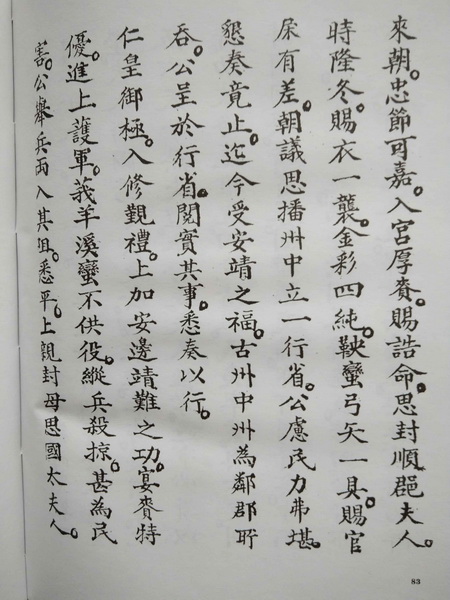 來朝。忠節可嘉。入宮厚賚。賜誥命。思封順郒夫人。
時隆冬。賜衣一襲。金彩四純。鞅蠻弓矢一具。賜官
屎有差。朝議思播州中立一行省。公慮民力弗堪。
懇奏竟止。迄今受安靖之福。古州中州為鄰郡所
吞。公呈於行省。閱實其事。悉奏以行。
仁皇御極。入修觀禮。上加安邊靖難之功。宴賚特
優。進上護軍。莪羊溪蠻不供役。縱兵殺掠。甚為民
害。公舉兵両入其阻。悉平。上親封母思國太夫人。
83